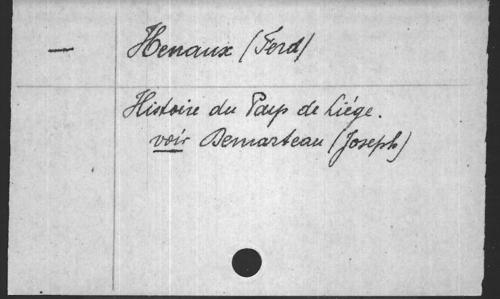 — Henaux (Ferd)
Histoire du Pays de Liége.
voir Demarteau (Joseph)